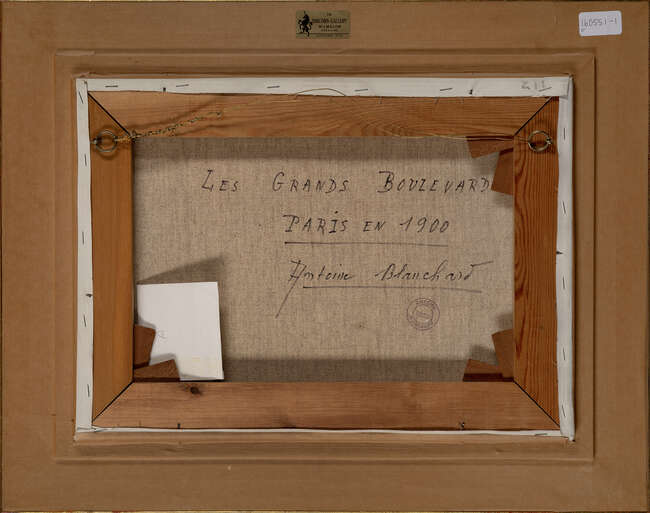 160551-1
LES GRANDS BOULEVARD
PARIS EN 1900
Antoine Blanchard